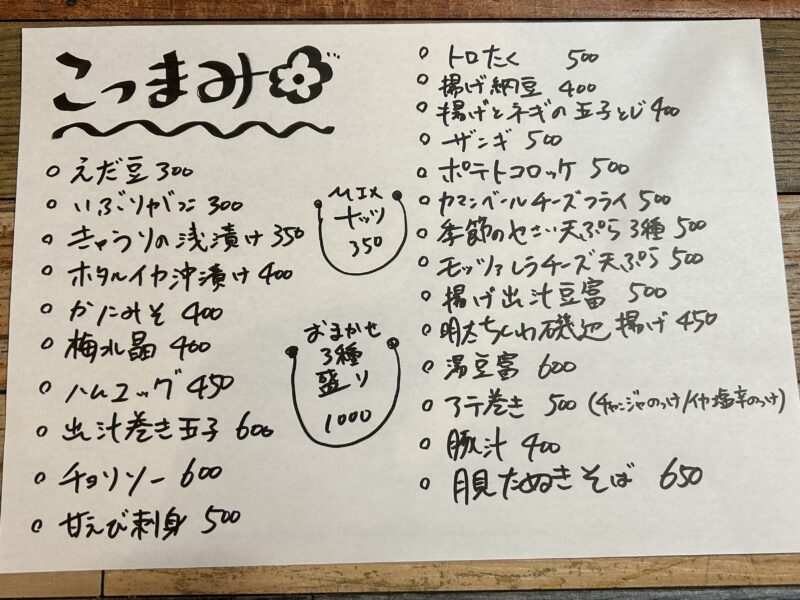 こつまみ
えだ豆 300
いぶりがっこ 300
きゅうりの浅漬け 350
ホタルイカ沖漬け 400
かにみそ 400
梅水晶 400
ハムエッグ 450
出汁巻き玉子 600
チョリソー 600
甘えび刺身 500
MIX
ナッツ
350
おまかせ
3種
盛り
1000
トロたく 500
揚げ納豆 400
揚げとネギの玉子とじ 400
ザンギ 500
ポテトコロッケ 500
カマンベールチーズフライ 500
季節のやさい天ぷら3種 500
モッツァレラチーズ天ぷら 500
揚げ出汁豆富 500
明太ちくわ磯辺揚げ 450
湯豆富 600
アテ巻き 500 (チャンジャのっけ/イカ塩辛のっけ)
豚汁 400
月見たぬきそば 650